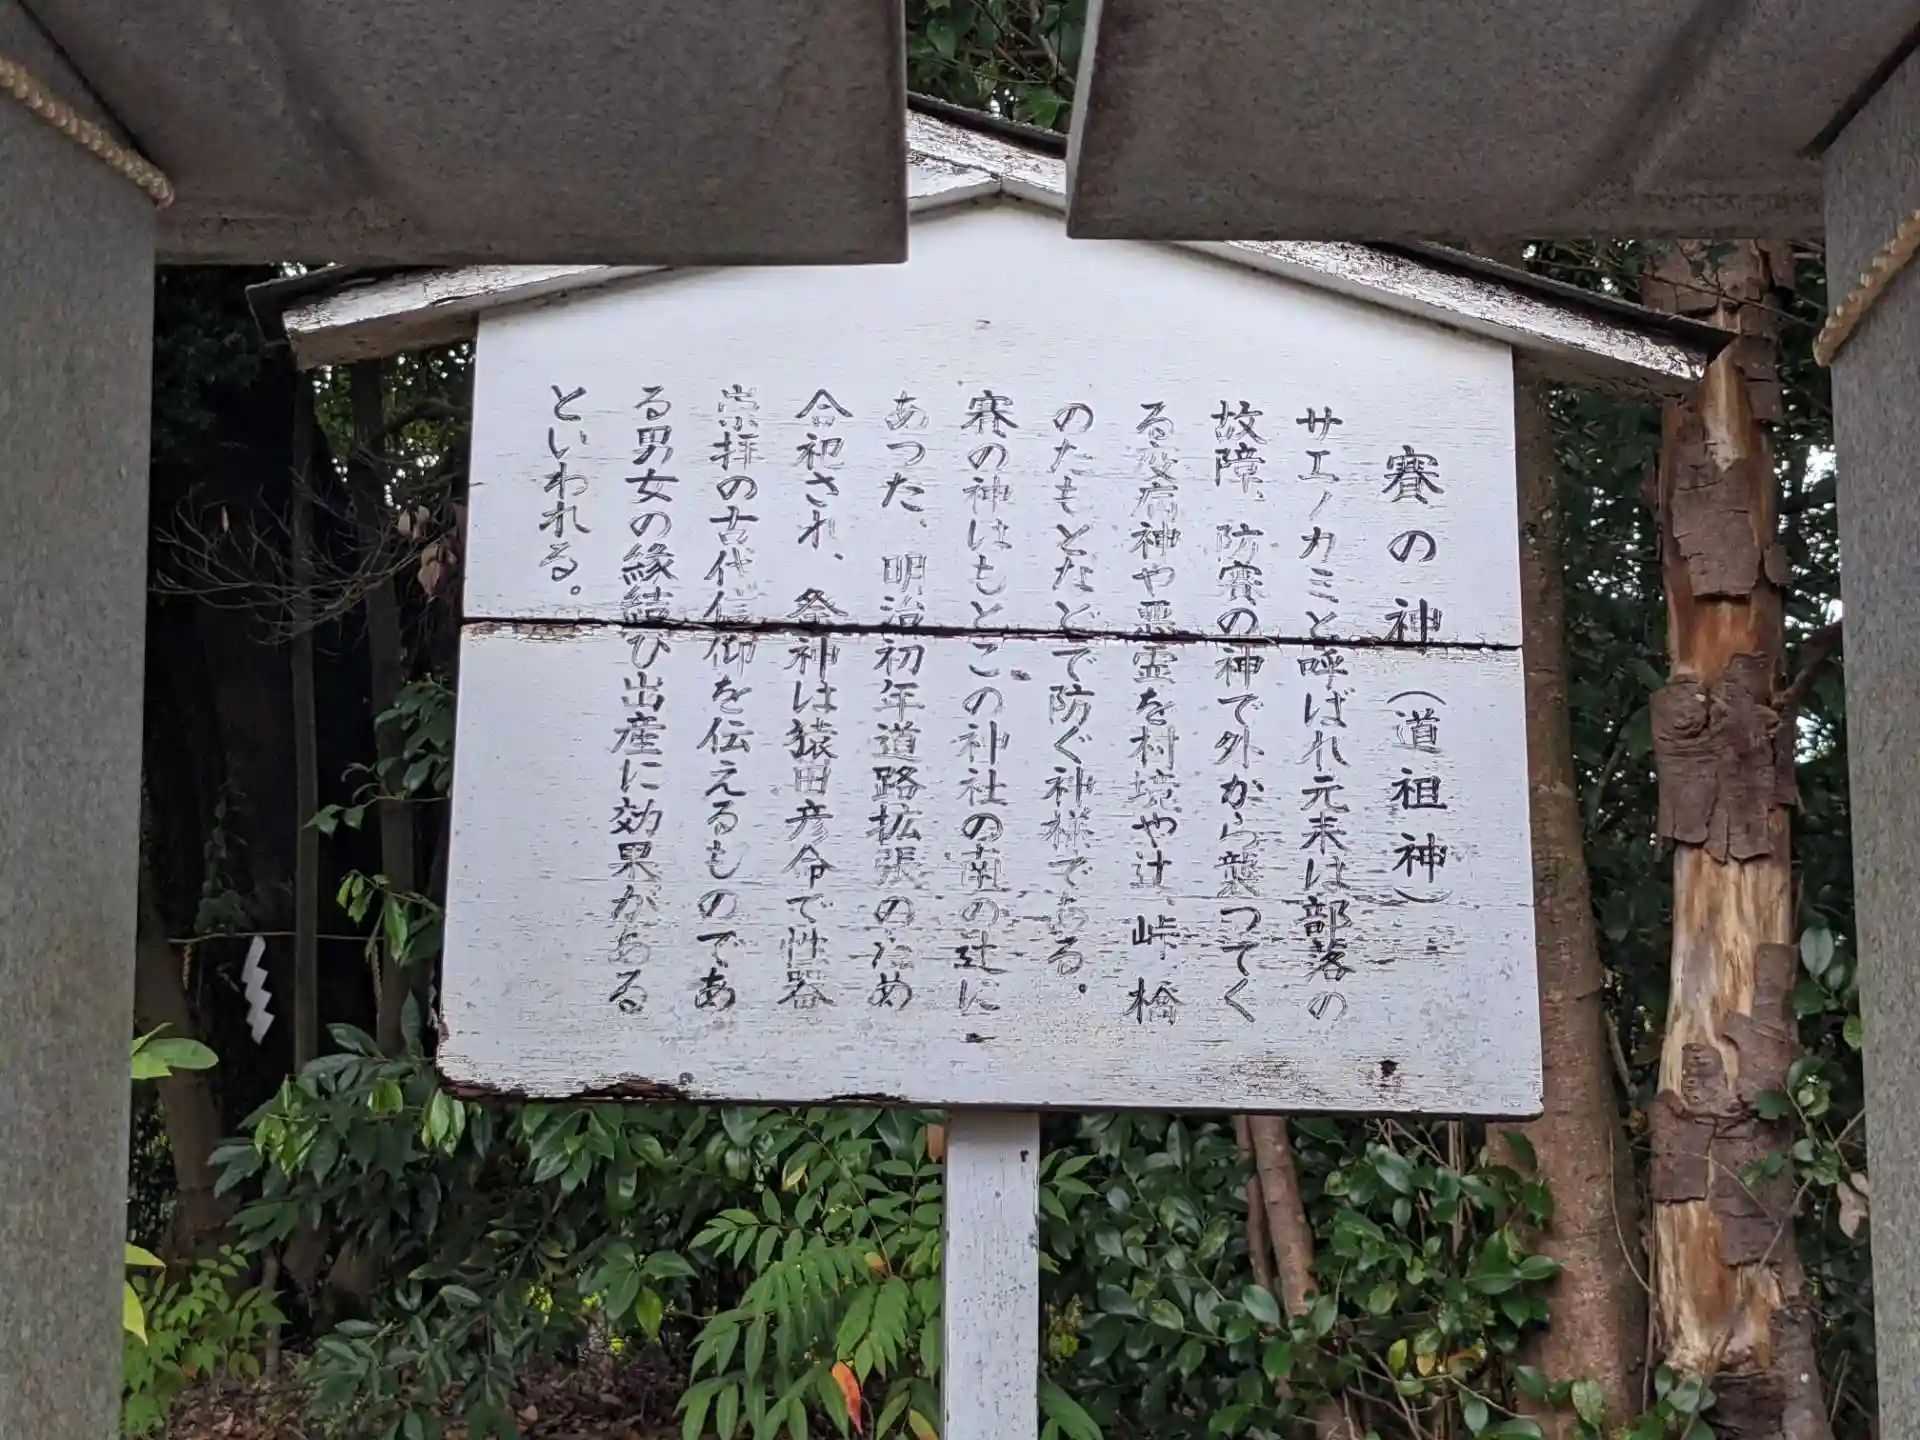 賽の神（道祖神）
サエノカミと呼ばれ元来は部落の
故障、防賽の神で外から襲ってく
る疫病神や悪霊を村境や辻、峠、橋
のたもとなどで防ぐ神様である。
賽の神はもとこの神社の南の辻に
あった、明治初年道路拡張のため
合祀され、祭神は猿田彦命で性器
崇拝の古代信仰を伝えるものであ
る男女の縁結び出産に効果がある
といわれる。